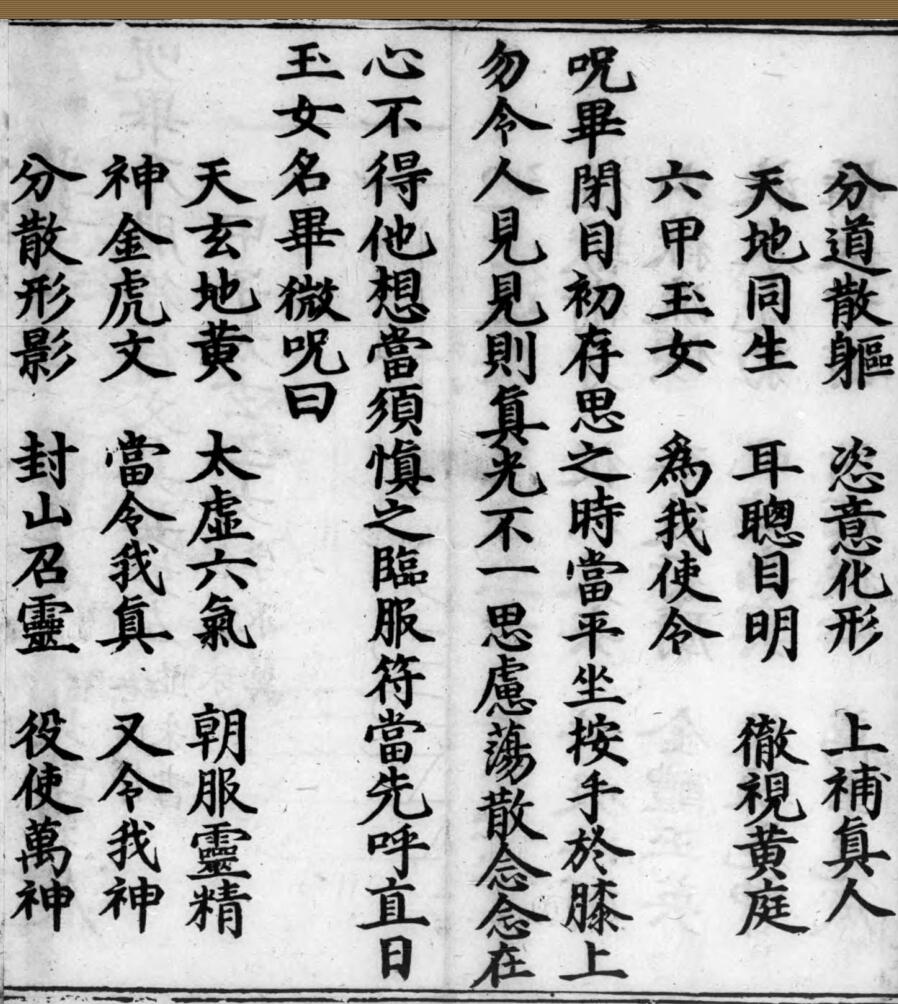 分道散軀　恣意化形　上補真人
天地同生　耳聰目明　徹視黄庭
六甲玉女　為我使令
呪畢閉目初存思之時當平坐按手於膝上
勿令人見見則真光不一思慮蕩散念念在
心不得他想當須慎之臨服符當先呼直日
玉女名畢微呪曰
天玄地黄　太虚六氣　朝服靈精
神金虎文　當令我真　又令我神
分散形影　封山召靈　役使萬神